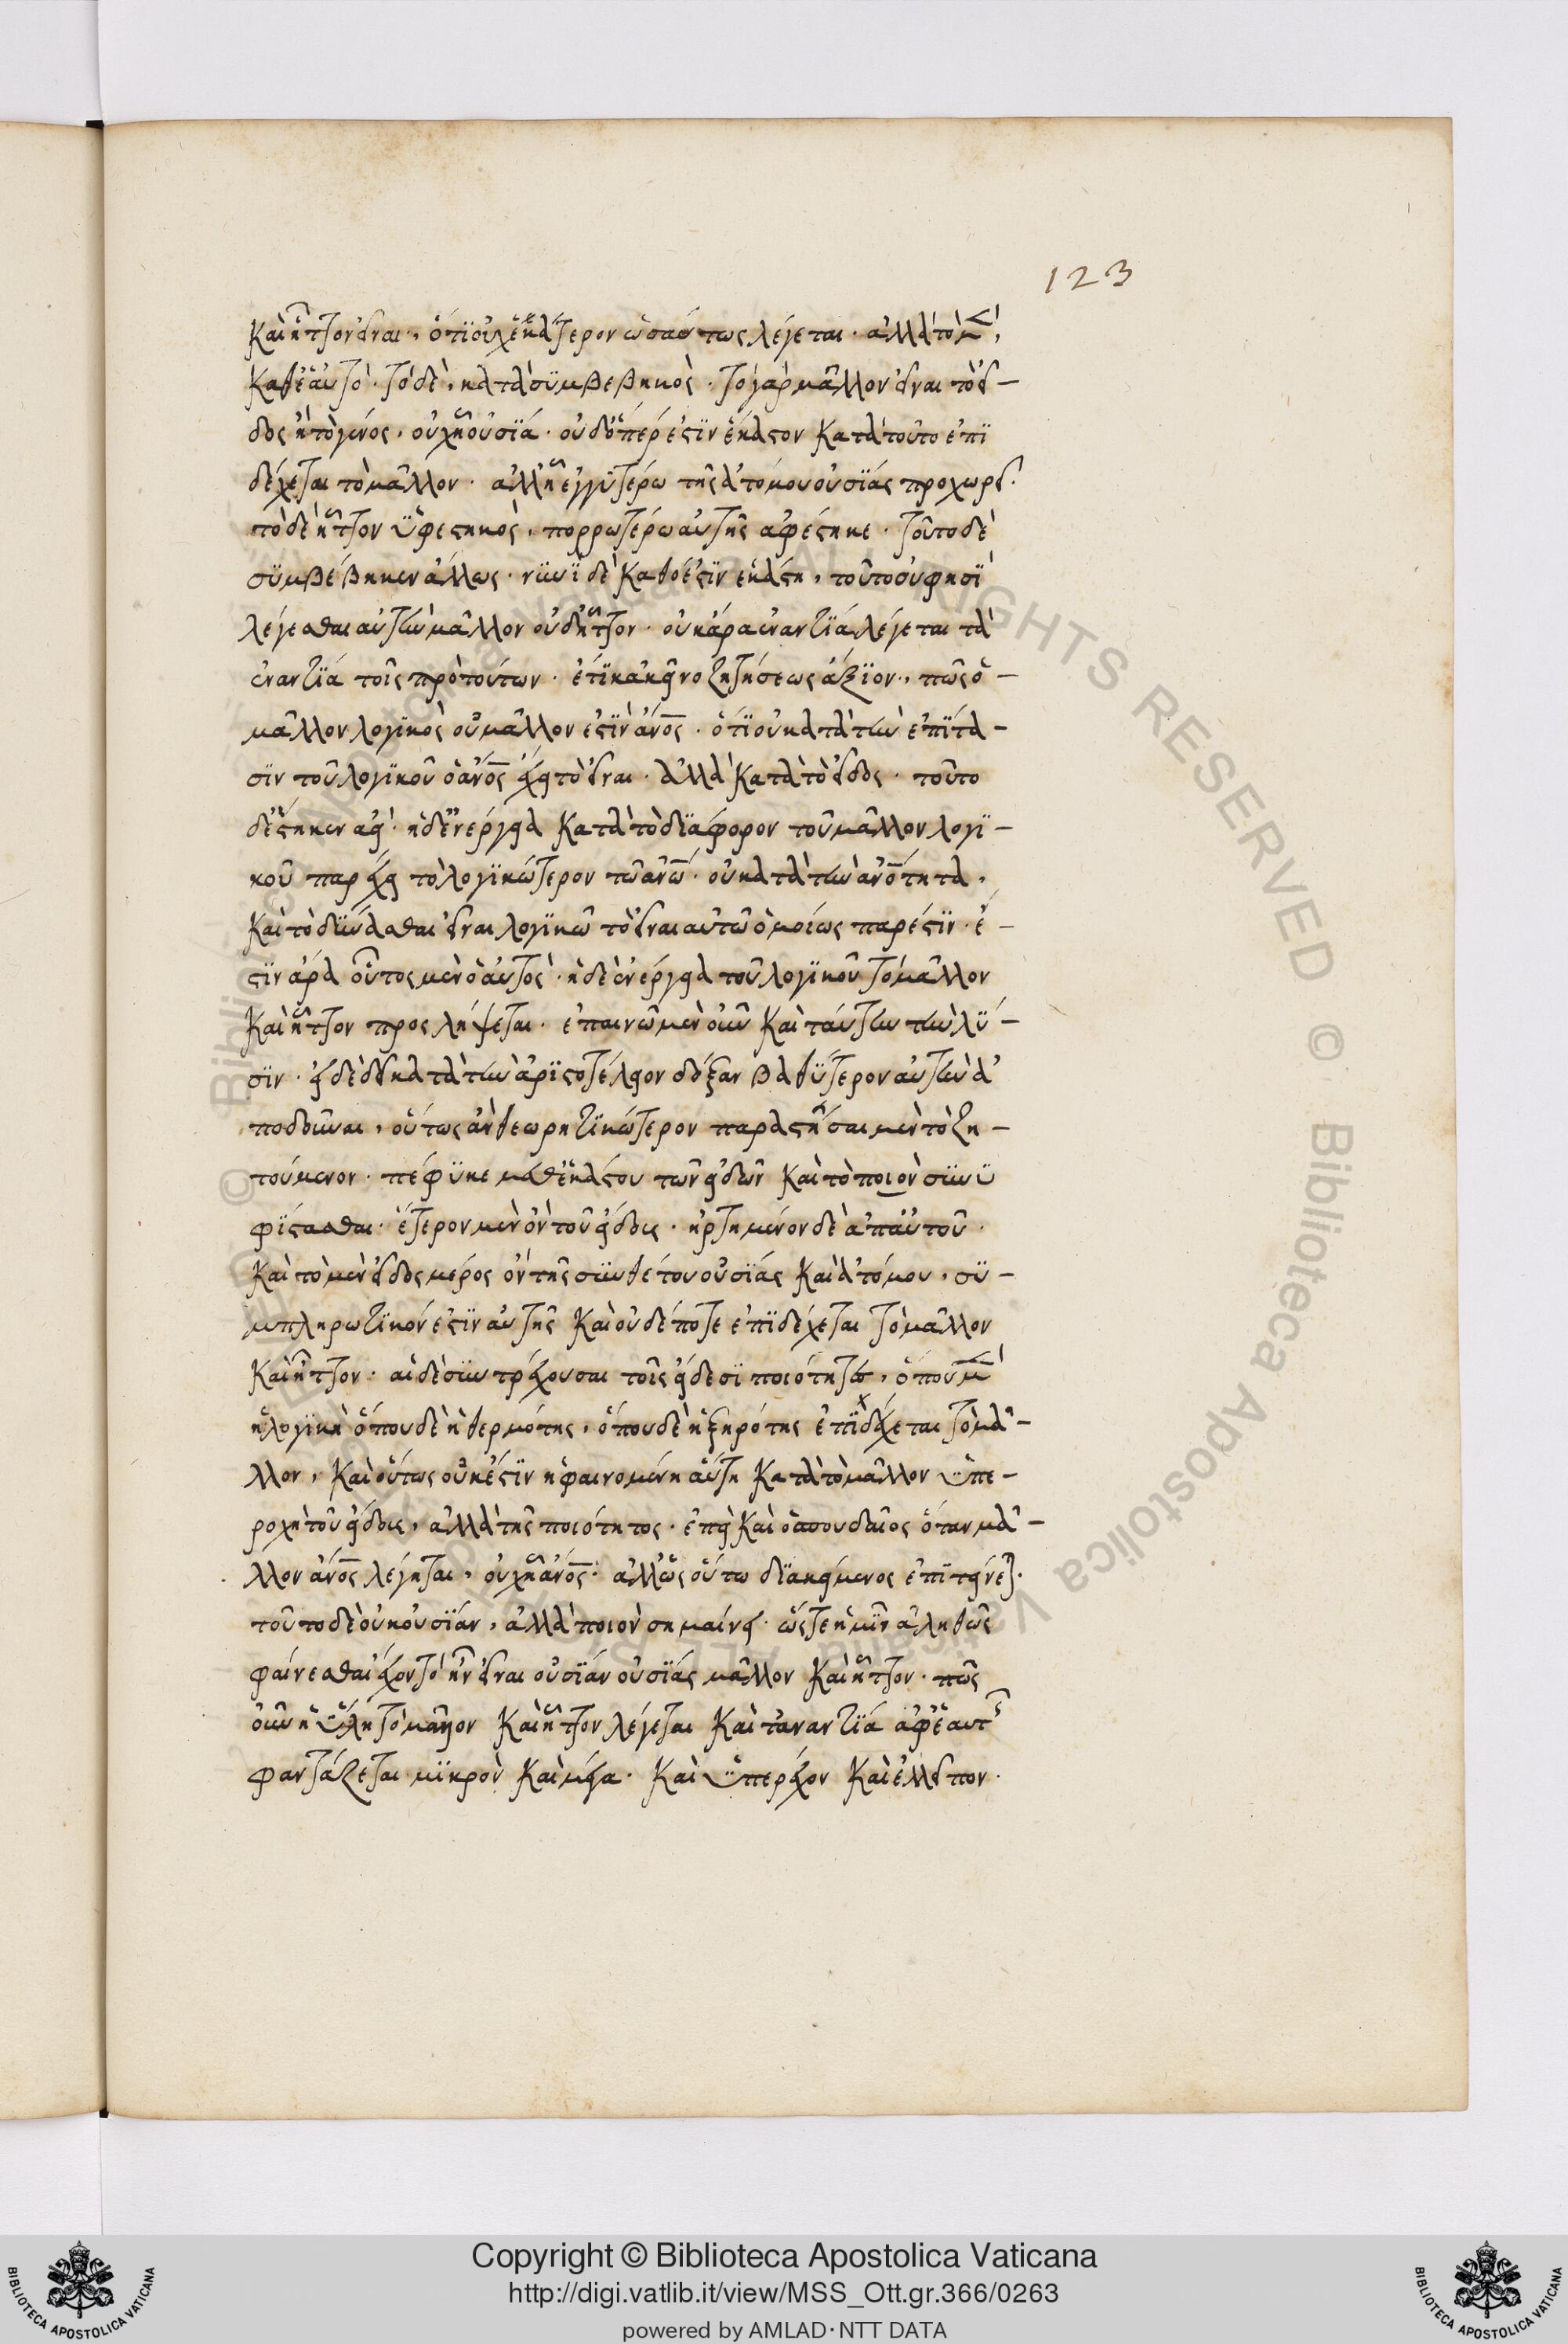 123
Καὶ ἧττον εἶναι, ὅτι οὐχ ἑκάτερον ὡσαύτως λέγεται. ἀλλὰ τὸ μὲν,
Καθ' ἑαυτό. τὸ δὲ, κατὰ συμβεβηκὸς. τὸ γὰρ μᾶλλον εἶναι τὸ εἶ-
δος ἢ τὸ γένος, οὐχ ᾗ οὐσία. οὐδ' ὅπερ ἐστὶν ἕκαστον κατὰ τοῦτο ἐπι
δέχεται τὸ μᾶλλον. ἀλλ' ᾗ ἐγγυτέρω τῆς ἀτόμου οὐσίας προχωρεῖ.
τὸ δὲ ἧττον ὑφεστηκὸς, πορρωτέρω αὐτῆς ἀφέστηκε. τοῦτο δὲ
συμβέβηκεν ἄλλως. νυνὶ δὲ καθό ἐστιν ἑκάστη, τοῦτο οὔ φησι
λέγεσθαι αὐτὴν μᾶλλον οὐδ' ἧττον. οὐκ ἄρα ἐναντία λέγεται τὰ
ἐναντία τοῖς πρὸ τούτων. ἔτι κἀκεῖνο ζητήσεως ἄξιον, πῶς ὁ -
μᾶλλον λογικὸς οὐ μᾶλλον ἐστὶν ἄνος. ὅτι οὐ κατὰ τὴν ἐπίτα-
σιν τοῦ λογικοῦ ὁ ἄνος ἔχει τὸ εἶναι. ἀλλὰ κατὰ τὸ εἶδος. τοῦτο
δ' ἕστηκεν ἀεὶ. ἡ δ' ἐνέργεια κατὰ τὸ διάφορον τοῦ μᾶλλον λογι-
κοῦ παρέχει τὸ λογικώτερον τῷ ἀνῳ. οὐ κατὰ τὴν ἀνότητα,
Καὶ τὸ δύνασθαι εἶναι λογικῷ τὸ εἶναι αὐτῷ ὁμοίως πάρεστιν. ἔ-
στιν ἄρα οὗτος μὲν ὁ αὐτὸς. ἡ δὲ ἐνέργεια τοῦ λογικοῦ τὸ μᾶλλον
Καὶ ἧττον προσλήψεται. ἐπαινῶ μὲν οὖν καὶ ταύτην τὴν λύ-
σιν. εἰ δὲ δεῖ κατὰ τὴν ἀριστοτέλειον δόξαν βαθύτερον αὐτὴν ἀ
ποδοῦναι, οὕτως ἂν θεωρητικώτερον παραστῆσαι μὲν τὸ ζη-
τούμενον. πέφυκε μεθ' ἑκάστου τῶν εἰδῶν καὶ τὸ ποιὸν συνυ
φίστασθαι. ἕτερον μὲν ὂν τοῦ εἴδους. ἠρτημένον δὲ ἀπ' αὐτοῦ.
Καὶ τὸ μὲν εἶδος μέρος ὂν τῆς συνθέτου οὐσίας καὶ ἀτόμου, συ-
μπληρωτικόν ἐστιν αὐτῆς καὶ οὐδέποτε ἐπιδέχεται τὸ μᾶλλον
Καὶ ἧττον. αἱ δὲ συντρέχουσαι τοῖς εἴδεσι ποιότητες, ὅπου μὲν
ἡ λογικὴ ὅπου δὲ ἡ θερμότης, ὅπου δὲ ἡ ξηρότης ἐπιδέχεται τὸ μᾶ-
λλον, καὶ οὕτως οὐκ ἔστιν ἡ φαινομένη αὕτη κατὰ τὸ μᾶλλον ὑπε-
ροχὴ τοῦ εἴδους, ἀλλὰ τῆς ποιότητος. ἐπεὶ καὶ ὁ σπουδαῖος ὅταν μᾶ-
λλον ἄνος λέγηται, οὐχ ᾗ ἄνος. ἀλλ' ὡς οὕτω διακείμενος ἐπιτείνεται.
τοῦτο δὲ οὐκ οὐσίαν, ἀλλὰ ποιὸν σημαίνει. ὥστε ἡμῖν ἀληθῶς
φαίνεσθαι ἔχον τὸ μὴ εἶναι οὐσίαν οὐσίας μᾶλλον καὶ ἧττον. πῶς
οὖν ἡ ὕλη τὸ μᾶλλον καὶ ἧττον λέγεται καὶ τἀναντία ἀφ' ἑαυτῆς
φαντάζεται μικρὸν καὶ μέγα. καὶ ὑπερέχον καὶ ἐλλεῖπον.
Copyright © Biblioteca Apostolica Vaticana
http://digi.vatlib.it/view/MSS_Ott.gr.366/0263
powered by AMLAD·NTT DATA
BIBLIOTECA APOSTOLICA VATICANA
BIBLIOTECA APOSTOLICA VATICANA